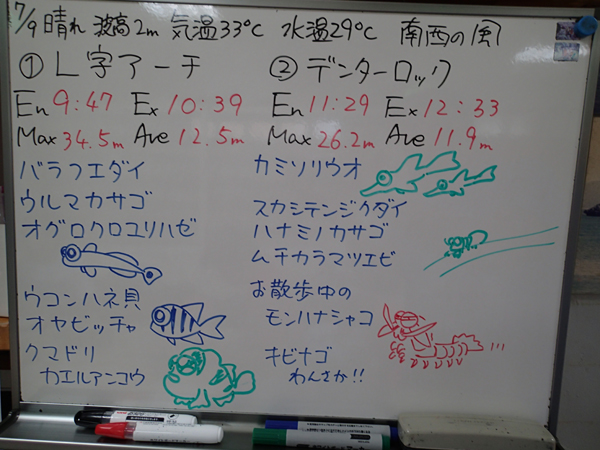 7/9 晴れ 波高2m 気温33℃ 水温29℃ 南西の風
① L字アーチ
En 9:47 Ex 10:39
Max 34.5m Ave 12.5m
バラフエダイ
ウルマカサゴ
オグロクロユリハゼ
ウコンハネ貝
オヤビッチャ
クマドリ
カエルアンコウ
② デンターロック
En 11:29 Ex 12:33
Max 26.2m Ave 11.9m
カミソリウオ
スカシテンジクダイ
ハナミノカサゴ
ムチカラマツエビ
お散歩中の
モンハナシャコ
キビナゴ
わんさか!!